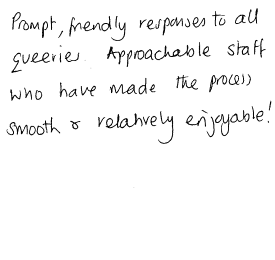 Prompt, friendly responses to all
queeries. Approachable staff
who have made the process
smooth & relatively enjoyable!